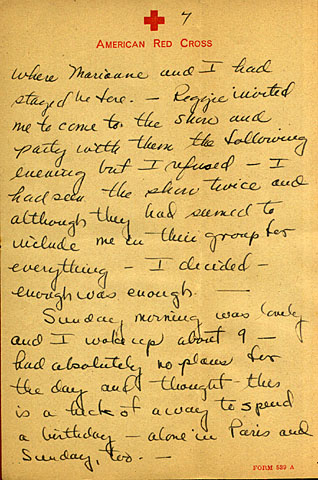 7
AMERICAN RED CROSS
where Marianne and I had
stayed before. – Reggie invited
me to come to the show and
party with them the following
evening but I refused – I
had seen the show twice and
although they had seemed to
include me in their group for
everything – I decided –
enough was enough. —
Sunday morning was lovely
and I woke up about 9 –
had absolutely no plans for
the day and thought – this
is a heck of a way to spend
a birthday – alone in Paris and
Sunday, too. –
FORM 539 A